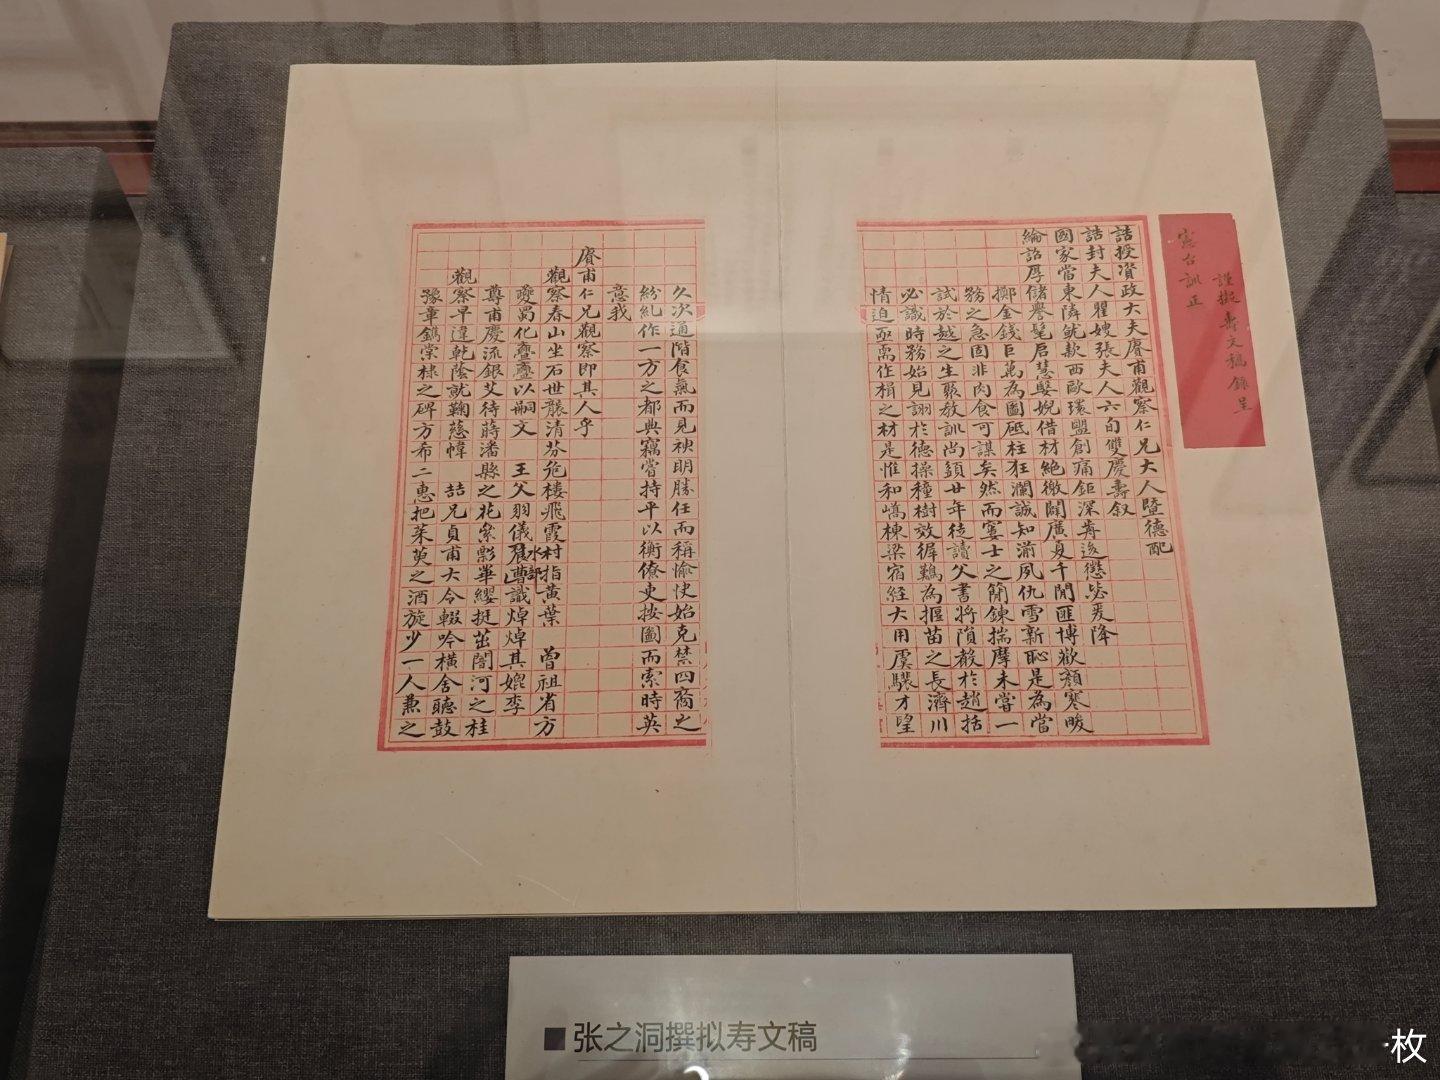 謹擬壽文稿錄呈
憲台訓正
誥授資政大夫賡甫觀察仁兄大人暨德配
誥封夫人瞿嫂張夫人六旬雙慶壽叙
國家當東隣就款西歐環盟創痛鉅深苒後懲毖爰降
綸詔厚儲譽髦启慧嬰婗借材絶徼闢廣夏千閒匪博歡顏寒畯
擲金錢巨萬為圖砥柱狂瀾誠知湔夙仇雪新恥是為當
務之急固非肉食可謀矣然而窶士之簡鍊揣摩未嘗一
試於越之生聚教訓尚須廿年徒讀父書將隕殽於趙括
必識時務始見詡於德操種樹效徲鷄為摳苗之長濟川
情迫亟需作楫之材是惟和嶠棟梁宿經大用虞騹才望
久次通階食氣而見袂明勝任而稱愉快始克禁四裔之
紛紇作一方之都典竊嘗持平以衡僚吏按圖而索時英
意我
賡甫仁兄觀察即其人乎
觀察春山坐石世襲清芬爸樓飛霞村指黃葉 曾祖省方
夔蜀化亹亹以嗣文 王父羽儀水部農曹識焯焯其媲李
尊甫慶流銀艾待蔣潘縣之花桼影華纓挺茁閬河之桂
觀察早違乾蔭就鞠慈幃 喆兄貞甫大令輟吟橫舍聽鼓
豫章鐫棠棣之碑方希二惠把茱萸之酒旋少一人兼之
张之洞撰拟寿文稿
枚